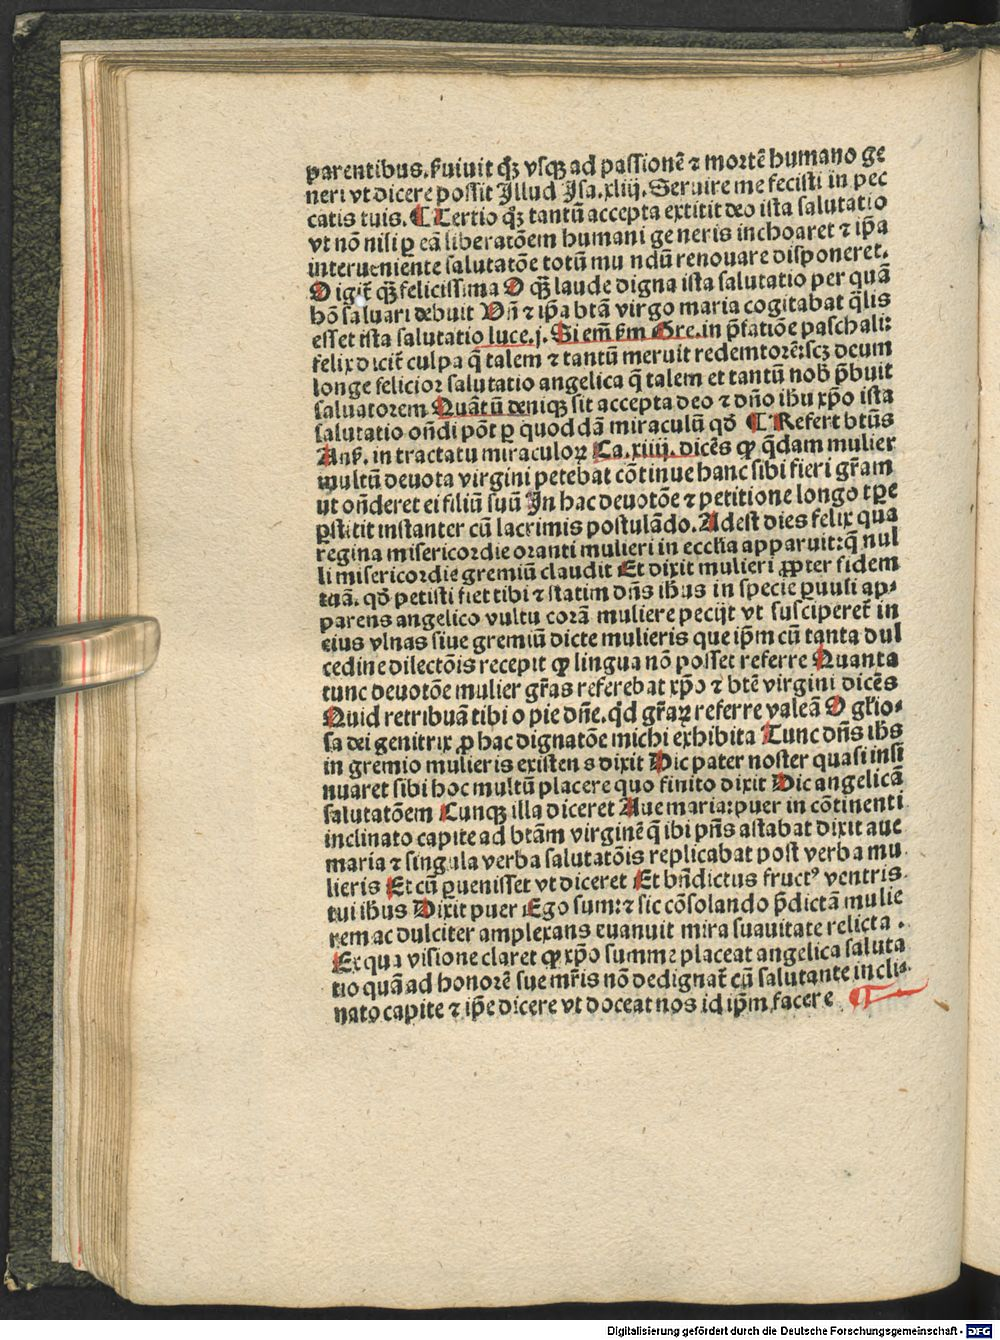 parentibus. ẜuiuit qꝫ vsqꝫ ad passionē ⁊ mortē humano ge
neri vt dicere possit Illud Isa.xliij. Seruire me fecisti in pec
catis tuis. ¶ Tertio qꝫ tantū accepta extitit deo ista salutatio
vt nō nisi ꝑ eā liberatōem humani generis inchoaret ⁊ ip̄a
interueniente salutatōe totū mundū renouare disponeret.
O igit̄ qꝫ felicissima O qꝫ laude digna ista salutatio per quā
hō saluari debuit Vn̄ ⁊ ip̄a btā virgo maria cogitabat q̄lis
esset ista salutatio luce.j. Si em̄ ẜm Gre. in p̄fatiōe paschali:
felix dicit̄ culpa q̄ talem ⁊ tantū meruit redemtorē: scꝫ deum
longe felicior salutatio angelica q̄ talem et tantū nob̄ p̄buit
saluatorem Quātū deniqꝫ sit accepta deo ⁊ dn̄o ihu xp̄o ista
salutatio on̄di pōt ꝑ quoddā miraculū qd̄ ¶ Refert btūs
Anẜ. in tractatu miraculoꝝ Ca.xiiij. dicēs ꝙ q̄dam mulier
multū deuota virgini petebat cōtinue hanc sibi fieri gr̄am
ut on̄deret ei filiū suū In hac deuotōe ⁊ petitione longo tꝑe
ꝑstitit instanter cū lacrimis postulādo. Adest dies felix qua
regina misericordie oranti mulieri in eccłia apparuit: q̄ nul
li misericordie gremiū claudit Et dixit mulieri ꝓpter fidem
tuā. qd̄ petisti fiet tibi ⁊ statim dn̄s ihūs in specie ꝑuuli ap⸗
parens angelico vultu corā muliere pecijt vt susciperet̄ in
eius vlnas siue gremiū dicte mulieris que ip̄m cū tanta dul
cedine dilectōis recepit ꝙ lingua nō posset referre Quanta
tunc deuotōe mulier gr̄as referebat xp̄o ⁊ btē virgini dicēs
Quid retribuā tibi o pie dn̄e. qd̄ gr̄aꝝ referre valeā O głio⸗
sa dei genitrix ꝓ hac dignatōe michi exhibita Tunc dn̄s ihs̄
in gremio mulieris existens dixit Dic pater noster quasi insi
nuaret sibi hoc multū placere quo finito dixit Dic angelicā
salutatōem Cunqꝫ illa diceret Aue maria: puer in cōtinenti
inclinato capite ad btām virginē q̄ ibi pn̄s astabat dixit aue
maria ⁊ singula verba salutatōis replicabat post verba mu
lieris Et cū ꝑuenisset vt diceret Et bn̄dictus fructꝰ ventris
tui ihūs Dixit puer Ego sum: ⁊ sic cōsolando p̄dictā mulie
rem ac dulciter amplexans euanuit mira suauitate relicta.
Ex qua visione claret ꝙ xp̄o summe placeat angelica saluta
tio quā ad honorē sue mr̄is nō dedignat̄ cū salutante incli⸗
nato capite ⁊ ip̄e dicere vt doceat nos id ip̄m facere
Digitalisierung gefördert durch die Deutsche Forschungsgemeinschaft - DFG